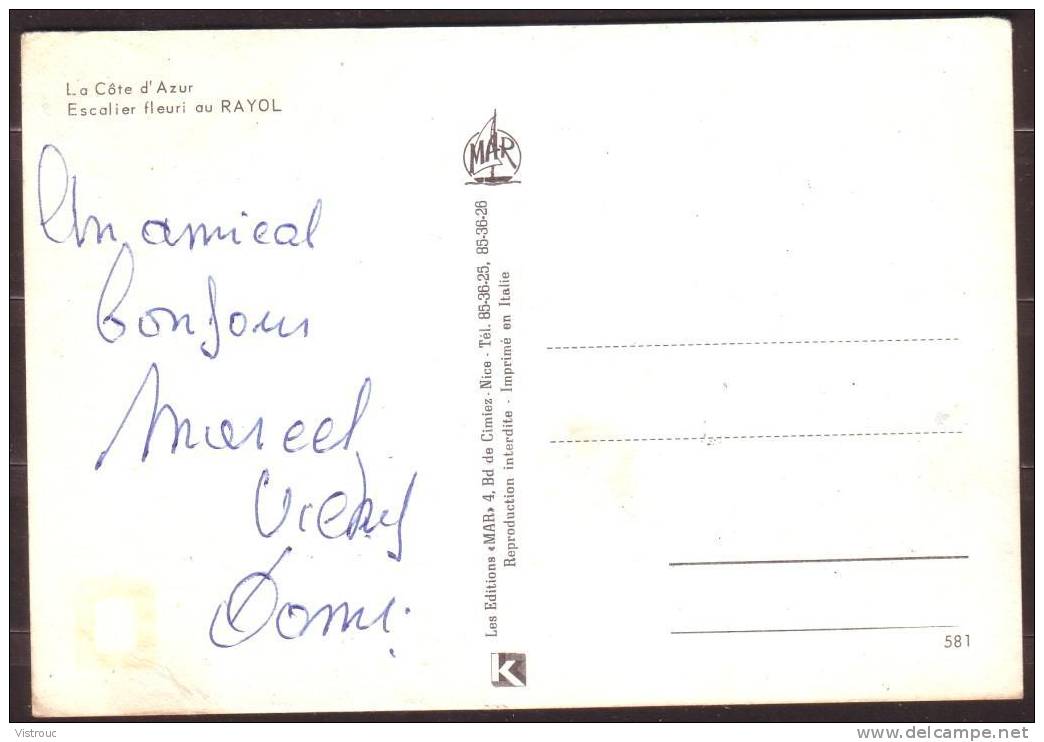 La Côte d'Azur
Escalier fleuri au RAYOL
Un amical
bonjour
Marcel
MAR
Les Editions «MAR» 4, Bd de Cimiez - Nice - Tél. 85-36-25, 85-36-26
Reproduction interdite - Imprimé en Italie
K
581
Vistrouc
delcampe.net